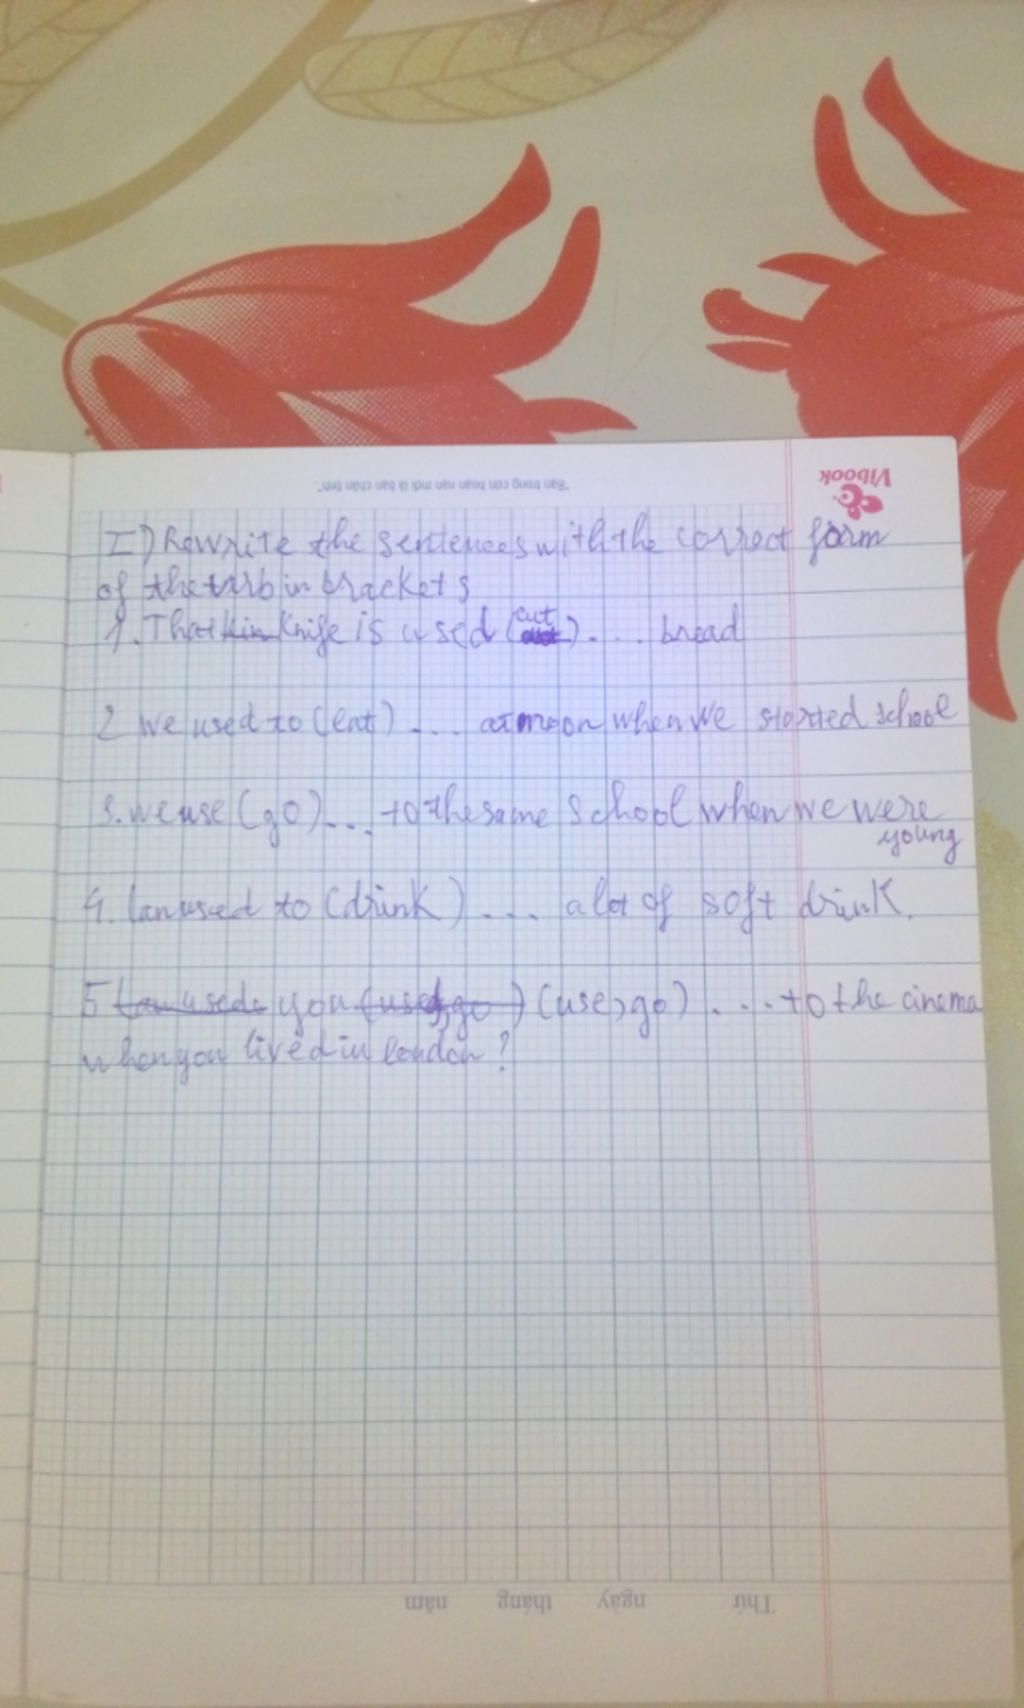 Vibook
"Bạn trong cơn hoạn nạn mới là bạn chân tình".
I) Rewrite the sentences with the correct form
of the verb in brackets
1. That knife is used (cut) .... bread
2 we used to (eat) .... at noon when we started school
3. we use (go) .... to the same school when we were
young
4. Ian used to (drink) .... a lot of soft drink.
5 you (use, go) .... to the cinema
when you lived in london?
Thứ ngày tháng năm